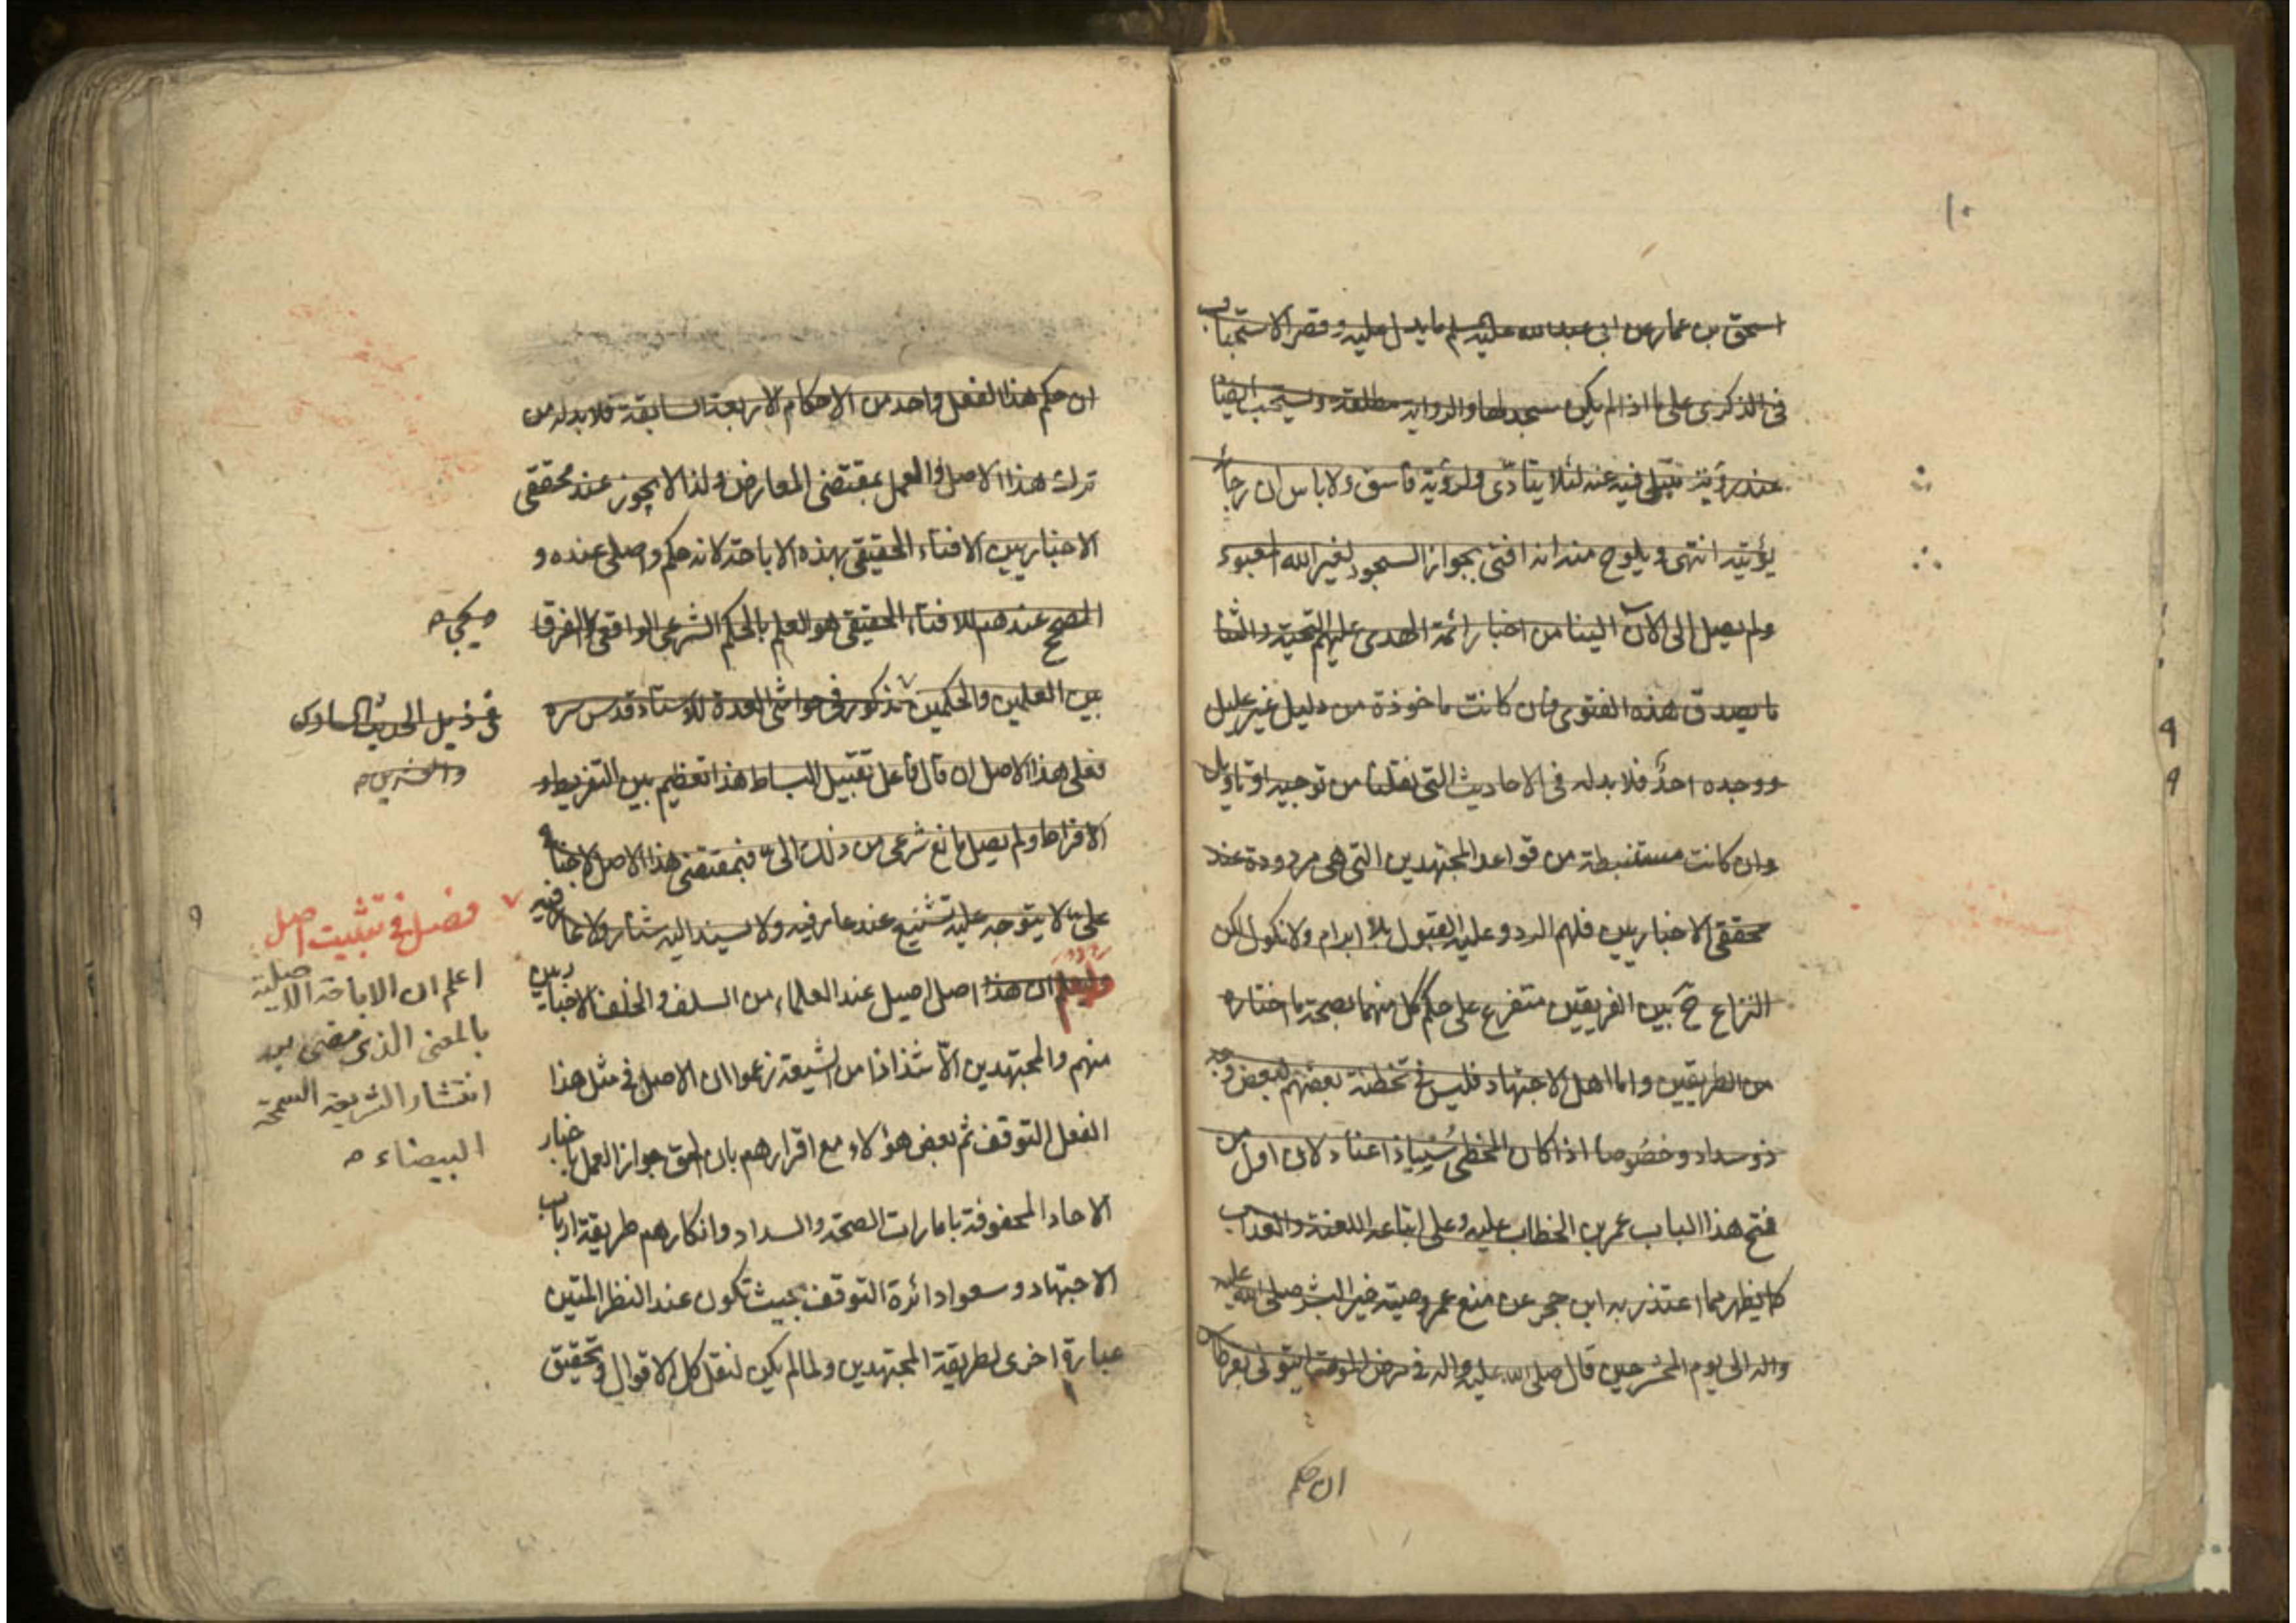 ١٠
اسحق بن عمار عن ابى عبد الله عليه السلم ما يدل عليه وقصر الاستحباب
فى الذكرى على ما اذا لم يكن سجد لها والرواية مطلقة ويستحب ايضا
عند رؤية مبتلى فيه عنه لئلا يتأذى ولرؤية فاسق ولا باس ان رجا
انتهى ويلوح منه انه افتى بجواز السجود لغير الله المعبود
ولم يصل الى الآن الينا من اخبار ائمة الهدى عليهم التحية والثنا
ما يصدق هذه الفتوى فان كانت ماخوذة من دليل غير عليل
ووجده احد فلا بد له فى الاحاديث التى نقلنا من توجيه او تاويل
وان كانت مستنبطة من قواعد المجتهدين التى هى مردودة عند
محققى الاخباريين فلهم الرد وعليه القبول بلا ابرام ولا نكول لكن
النزاع ح بين الفريقين متفرع على حكم كل منهما بصحة ما اختاره
من الطريقين واما اهل الاجتهاد فليس فى تخطئة بعضهم لبعض وجه
ذو سداد وخصوصا اذا كان المخطى ذا عناد لان اول من
فتح هذا الباب عمر بن الخطاب عليه وعلى اتباعه اللعنة والعذاب
كما يظهر مما اعتذر به ابن حجر عن منع عمر وصية خير البشر صلى الله عليه
واله الى يوم المحشر حين قال صلى الله عليه واله فى مرض الموت ايتونى بقرطاس
ان حكم
ان حكم هذا الفعل واحد من الاحكام الاربعة السابقة فلا بد له من
ترك هذا الاصل والعمل بمقتضى المعارض ولذا لا يجوز عند محققى
الاخباريين الافتاء الحقيقى بهذه الاباحة لانه حكم وصلى عنده و
المصحح عندهم للافتاء الحقيقى هو العلم بالحكم الشرعى الواقعى والفرق
بين العلمين والحكمين مذكور فى حواشى العدة للاستاد قدس سره
فعلى هذا الاصل ان قال فاعل تقبيل البساط هذا تعظيم بين التفريط و
الافراط ولم يصل مانع شرعى من ذلك الى فبمقتضى هذا الاصل لا جناح
على لا يتوجه عليه تشنيع عند عارفيه ولا يسند اليه شنار ولا عار فيه
وليعلم ان هذا اصل اصيل عند العلماء من السلف والخلف الاخباريين
منهم والمجتهدين الا شذاذا من الشيعة زعموا ان الاصل فى مثل هذا
الفعل التوقف ثم بعض هؤلاء مع اقرارهم بان الحق جواز العمل باخبار
الاحاد المحفوفة بامارات الصحة والسداد وانكارهم طريقة ارباب
الاجتهاد وسعوا دائرة التوقف بحيث تكون عند النظر المتين
عبارة اخرى لطريقة المجتهدين ولما لم يكن لنقل كل الاقوال وتحقيق
فى ذيل الحديث السادس
والعشرين
فصل فى تثبيت اصل
اعلم ان الاباحة الاصلية
بالمعنى الذى مضى بعد
انتشار الشريعة السمحة
البيضاء